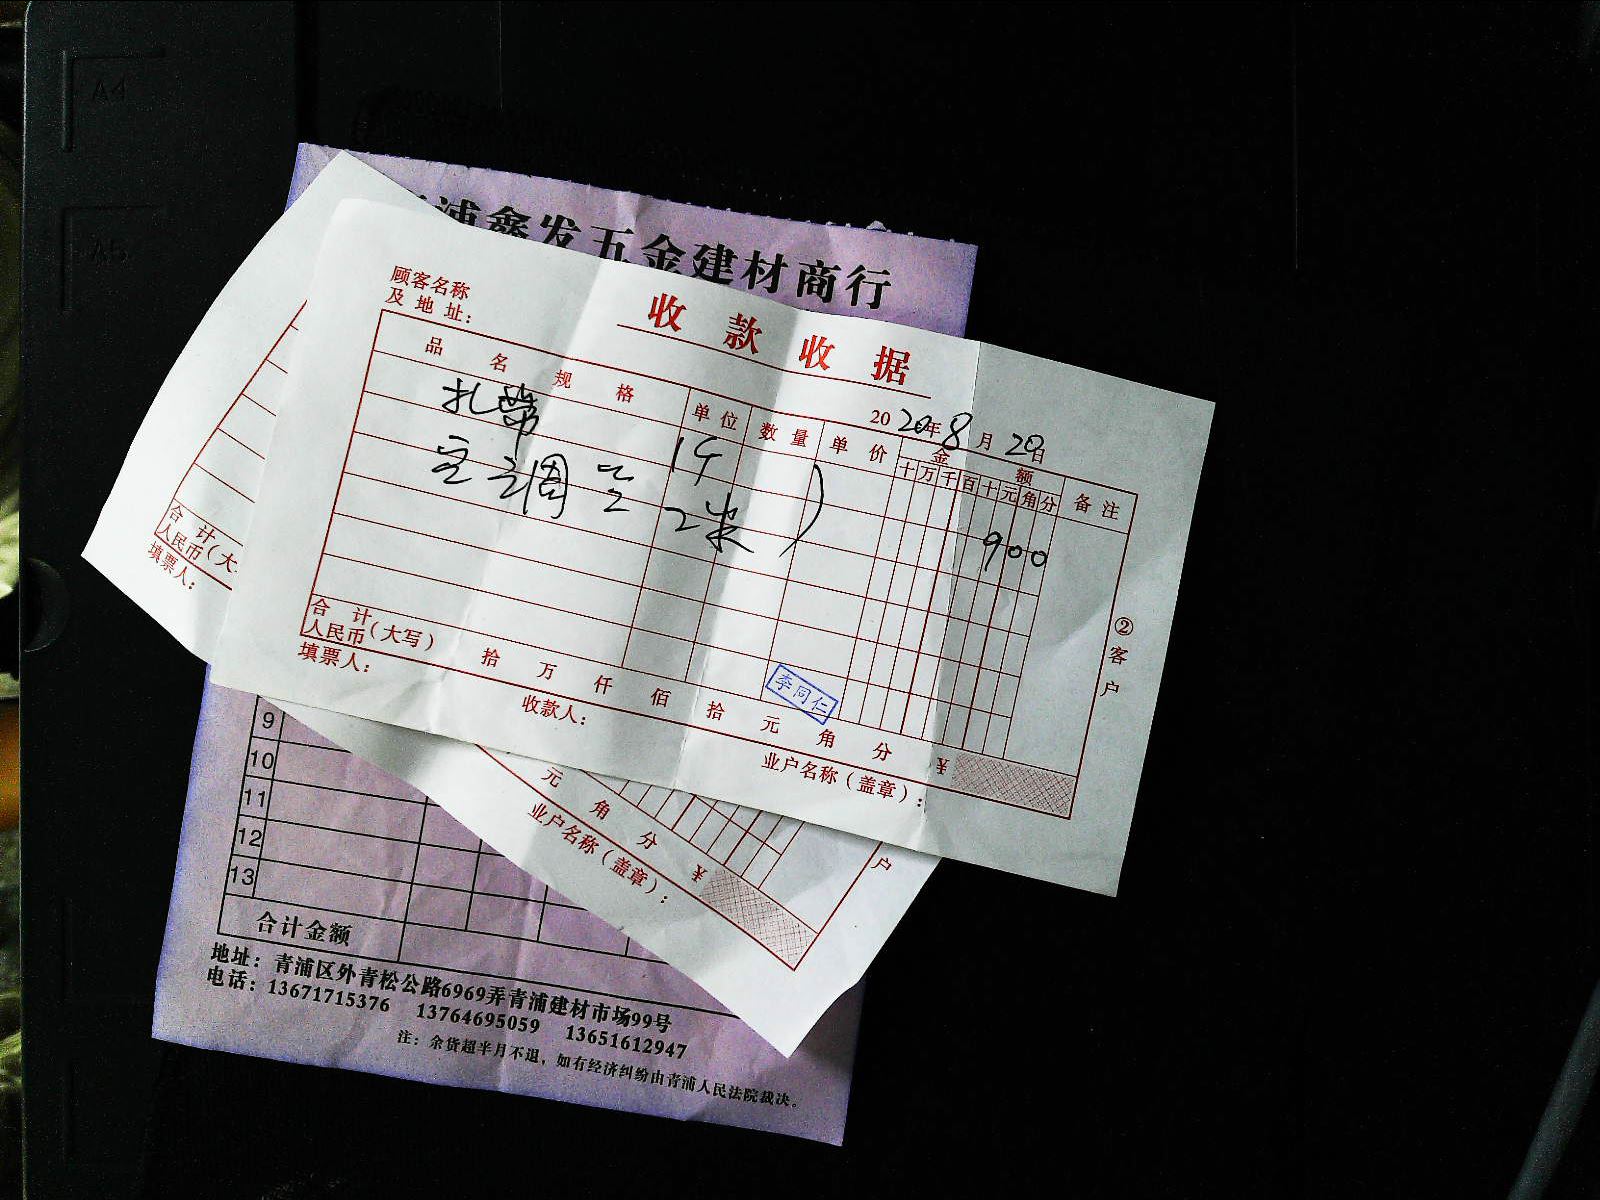 A4
A5
浦鑫发五金建材商行
收款收据
顾客名称
及地址：
2020年8月20日
品名规格 单位 数量 单价 金额 备注
十万千百十元角分
扎带 1个
空调管 2米
900
合计
人民币(大写) 拾万仟佰拾元角分 ¥
填票人：
收款人：
业户名称(盖章)：
李同仁
②客户
合计
人民币(大
填票人：
元角分 ¥
业户名称(盖章)：
户
9
10
11
12
13
合计金额
地址：青浦区外青松公路6969弄青浦建材市场99号
电话：13671715376 13764695059 13651612947
注：余货超半月不退，如有经济纠纷由青浦人民法院裁决。